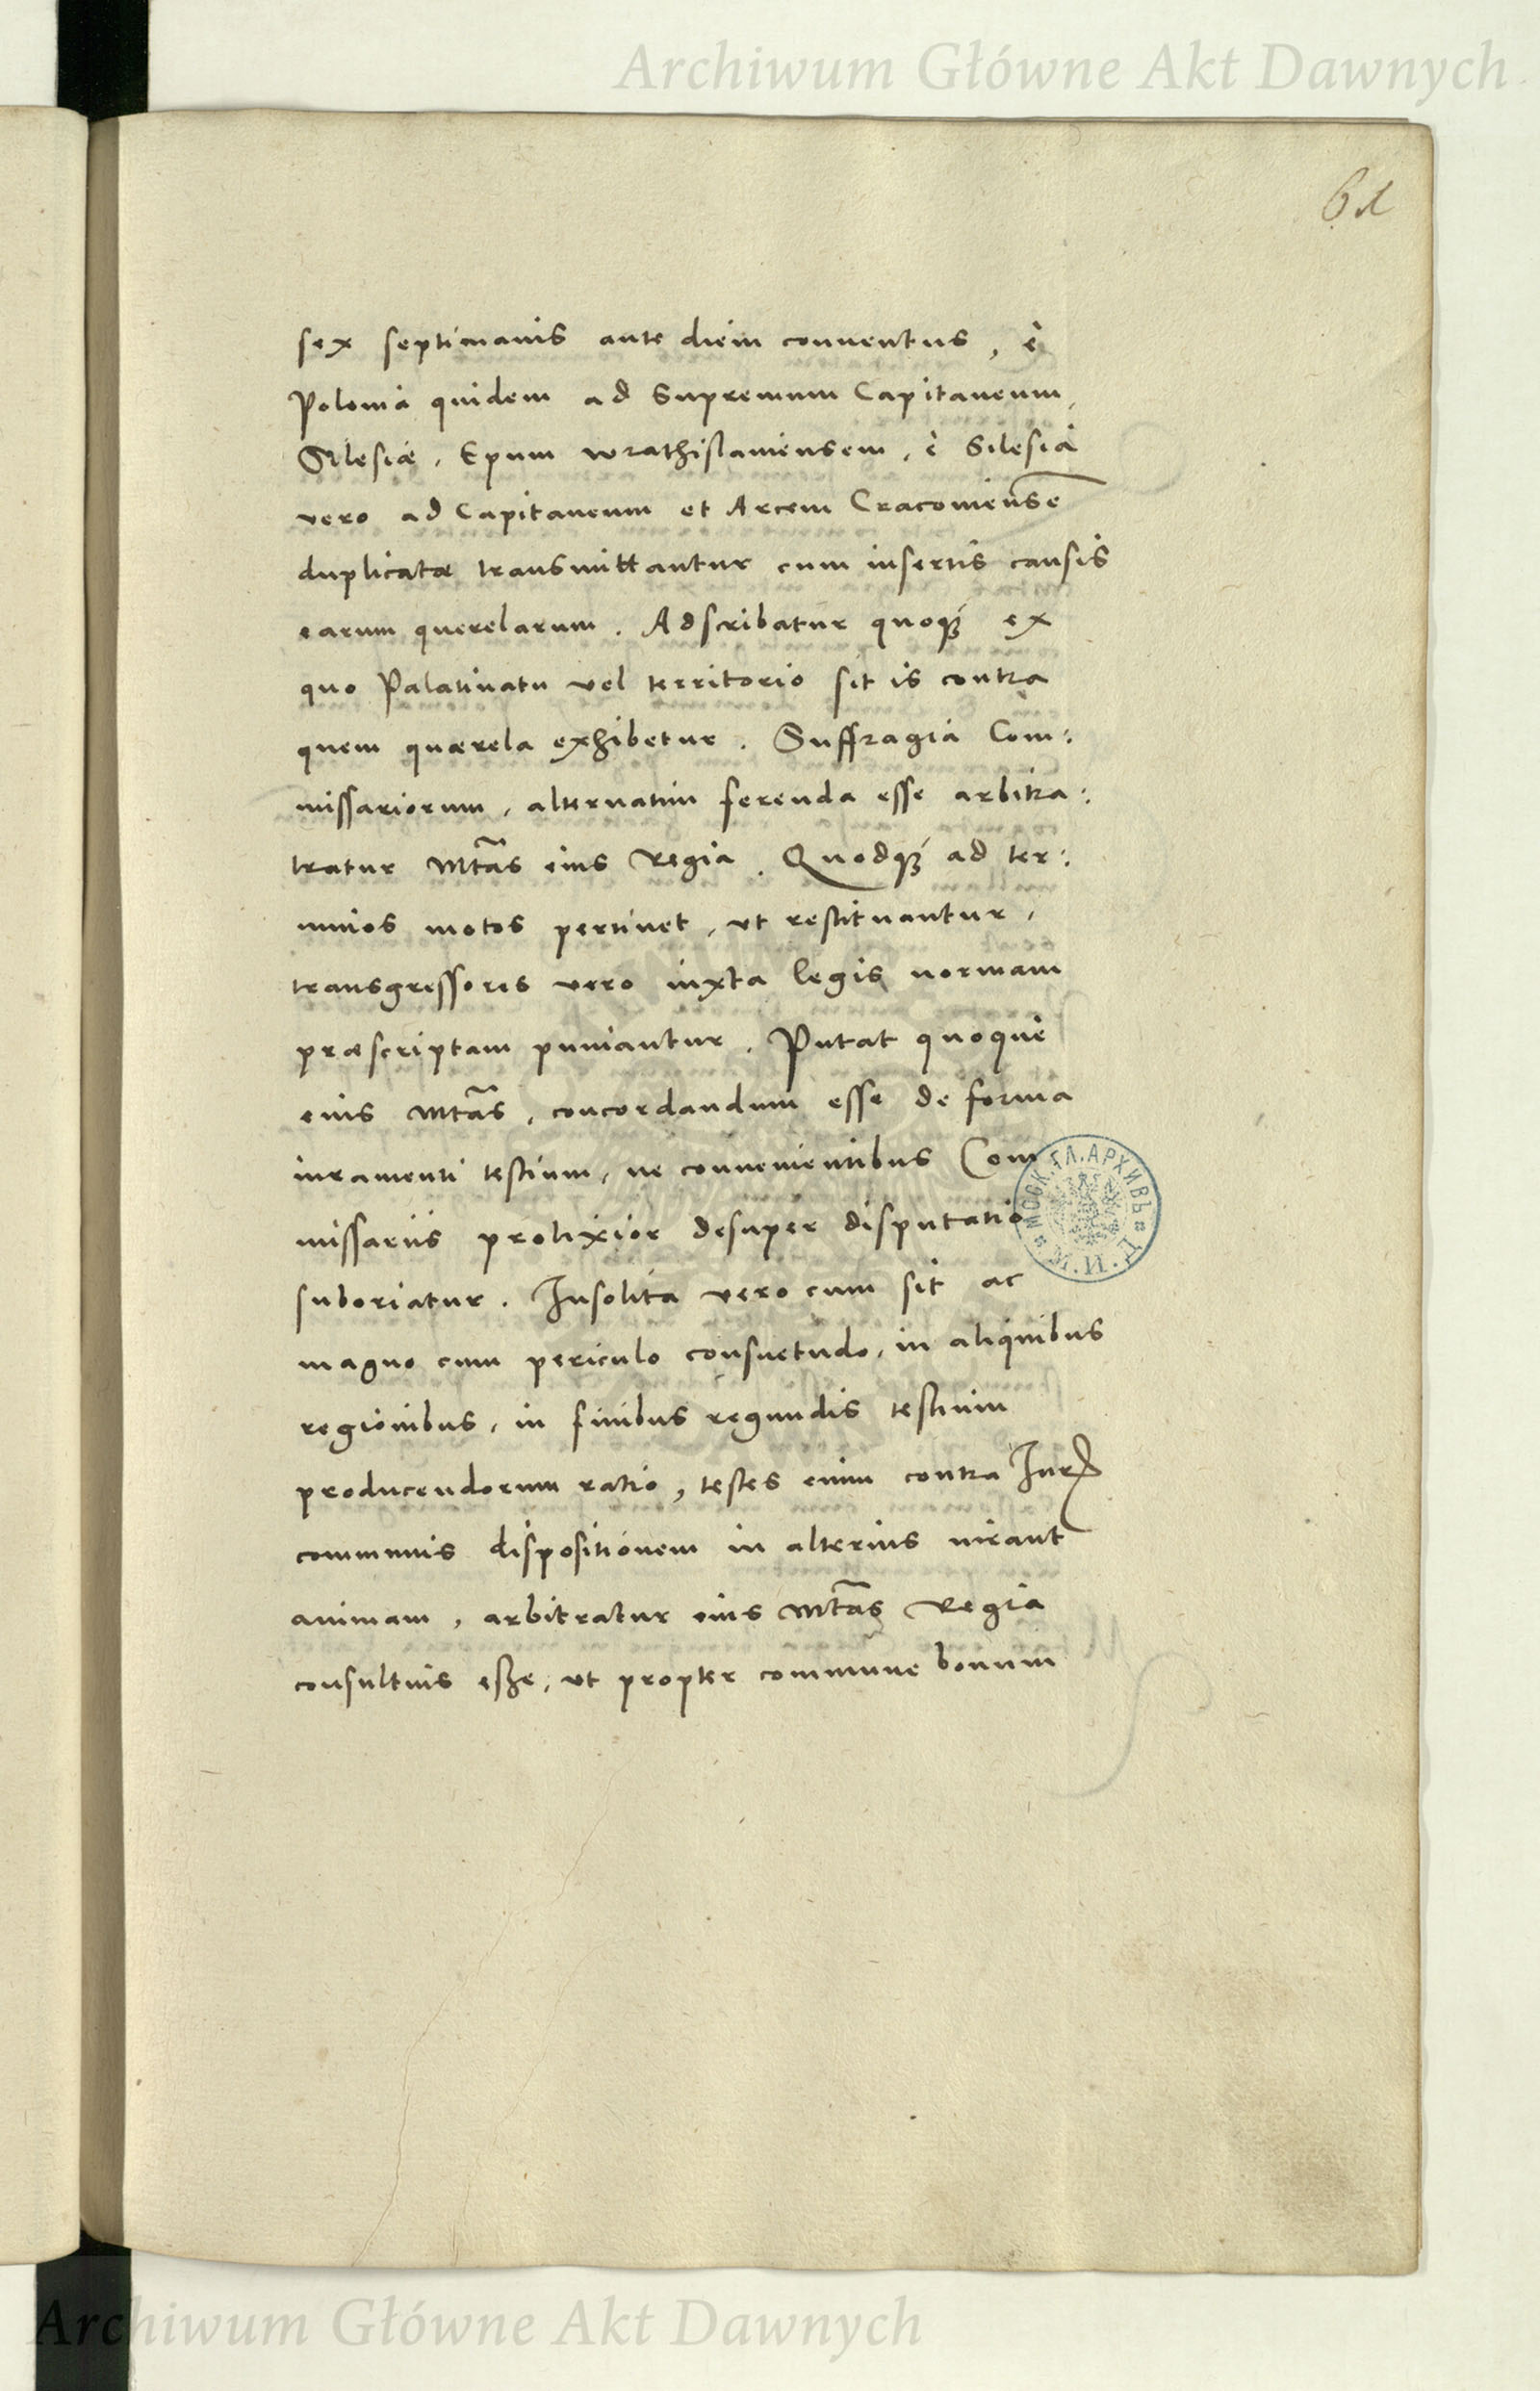 Archiwum Główne Akt Dawnych
61
sex septimanis ante diem conuentus, è
Polonia quidem ad Supremum Capitaneum,
Silesiæ, Epum Wrathislauiensem, è Silesia
vero ad Capitaneum et Arcem Cracouiensē
duplicatæ transmittantur cum insertis causis
earum querelarum. Adscribatur quoq; ex
quo Palatinatu vel territorio sit is contra
quem quærela exhibetur. Suffragia Com:
missariorum, alternatim ferenda esse arbitra:
tratur Mtās eius Regia. Quodq; ad ter:
minos motos pertinet, vt restituantur,
transgressores vero iuxta legis normam
præscriptam puniantur. Putat quoque
eius Mtās, concordandum esse de forma
iuramenti testium, ne conuenientibus Com
missariis prolixior desuper disputatio
suboriatur. Insolita vero cum sit ac
magno cum periculo consuetudo, in aliquibus
regionibus, in finibus regundis testium
producendorum ratio, testes enim contra Juris
communis dispositionem in alterius iurant
animam, arbitratur eius Mtās Regia
consultius esse, vt propter commune bonum
МОСК. ГЛ. АРХИВЪ
М. И. Д.
Archiwum Główne Akt Dawnych